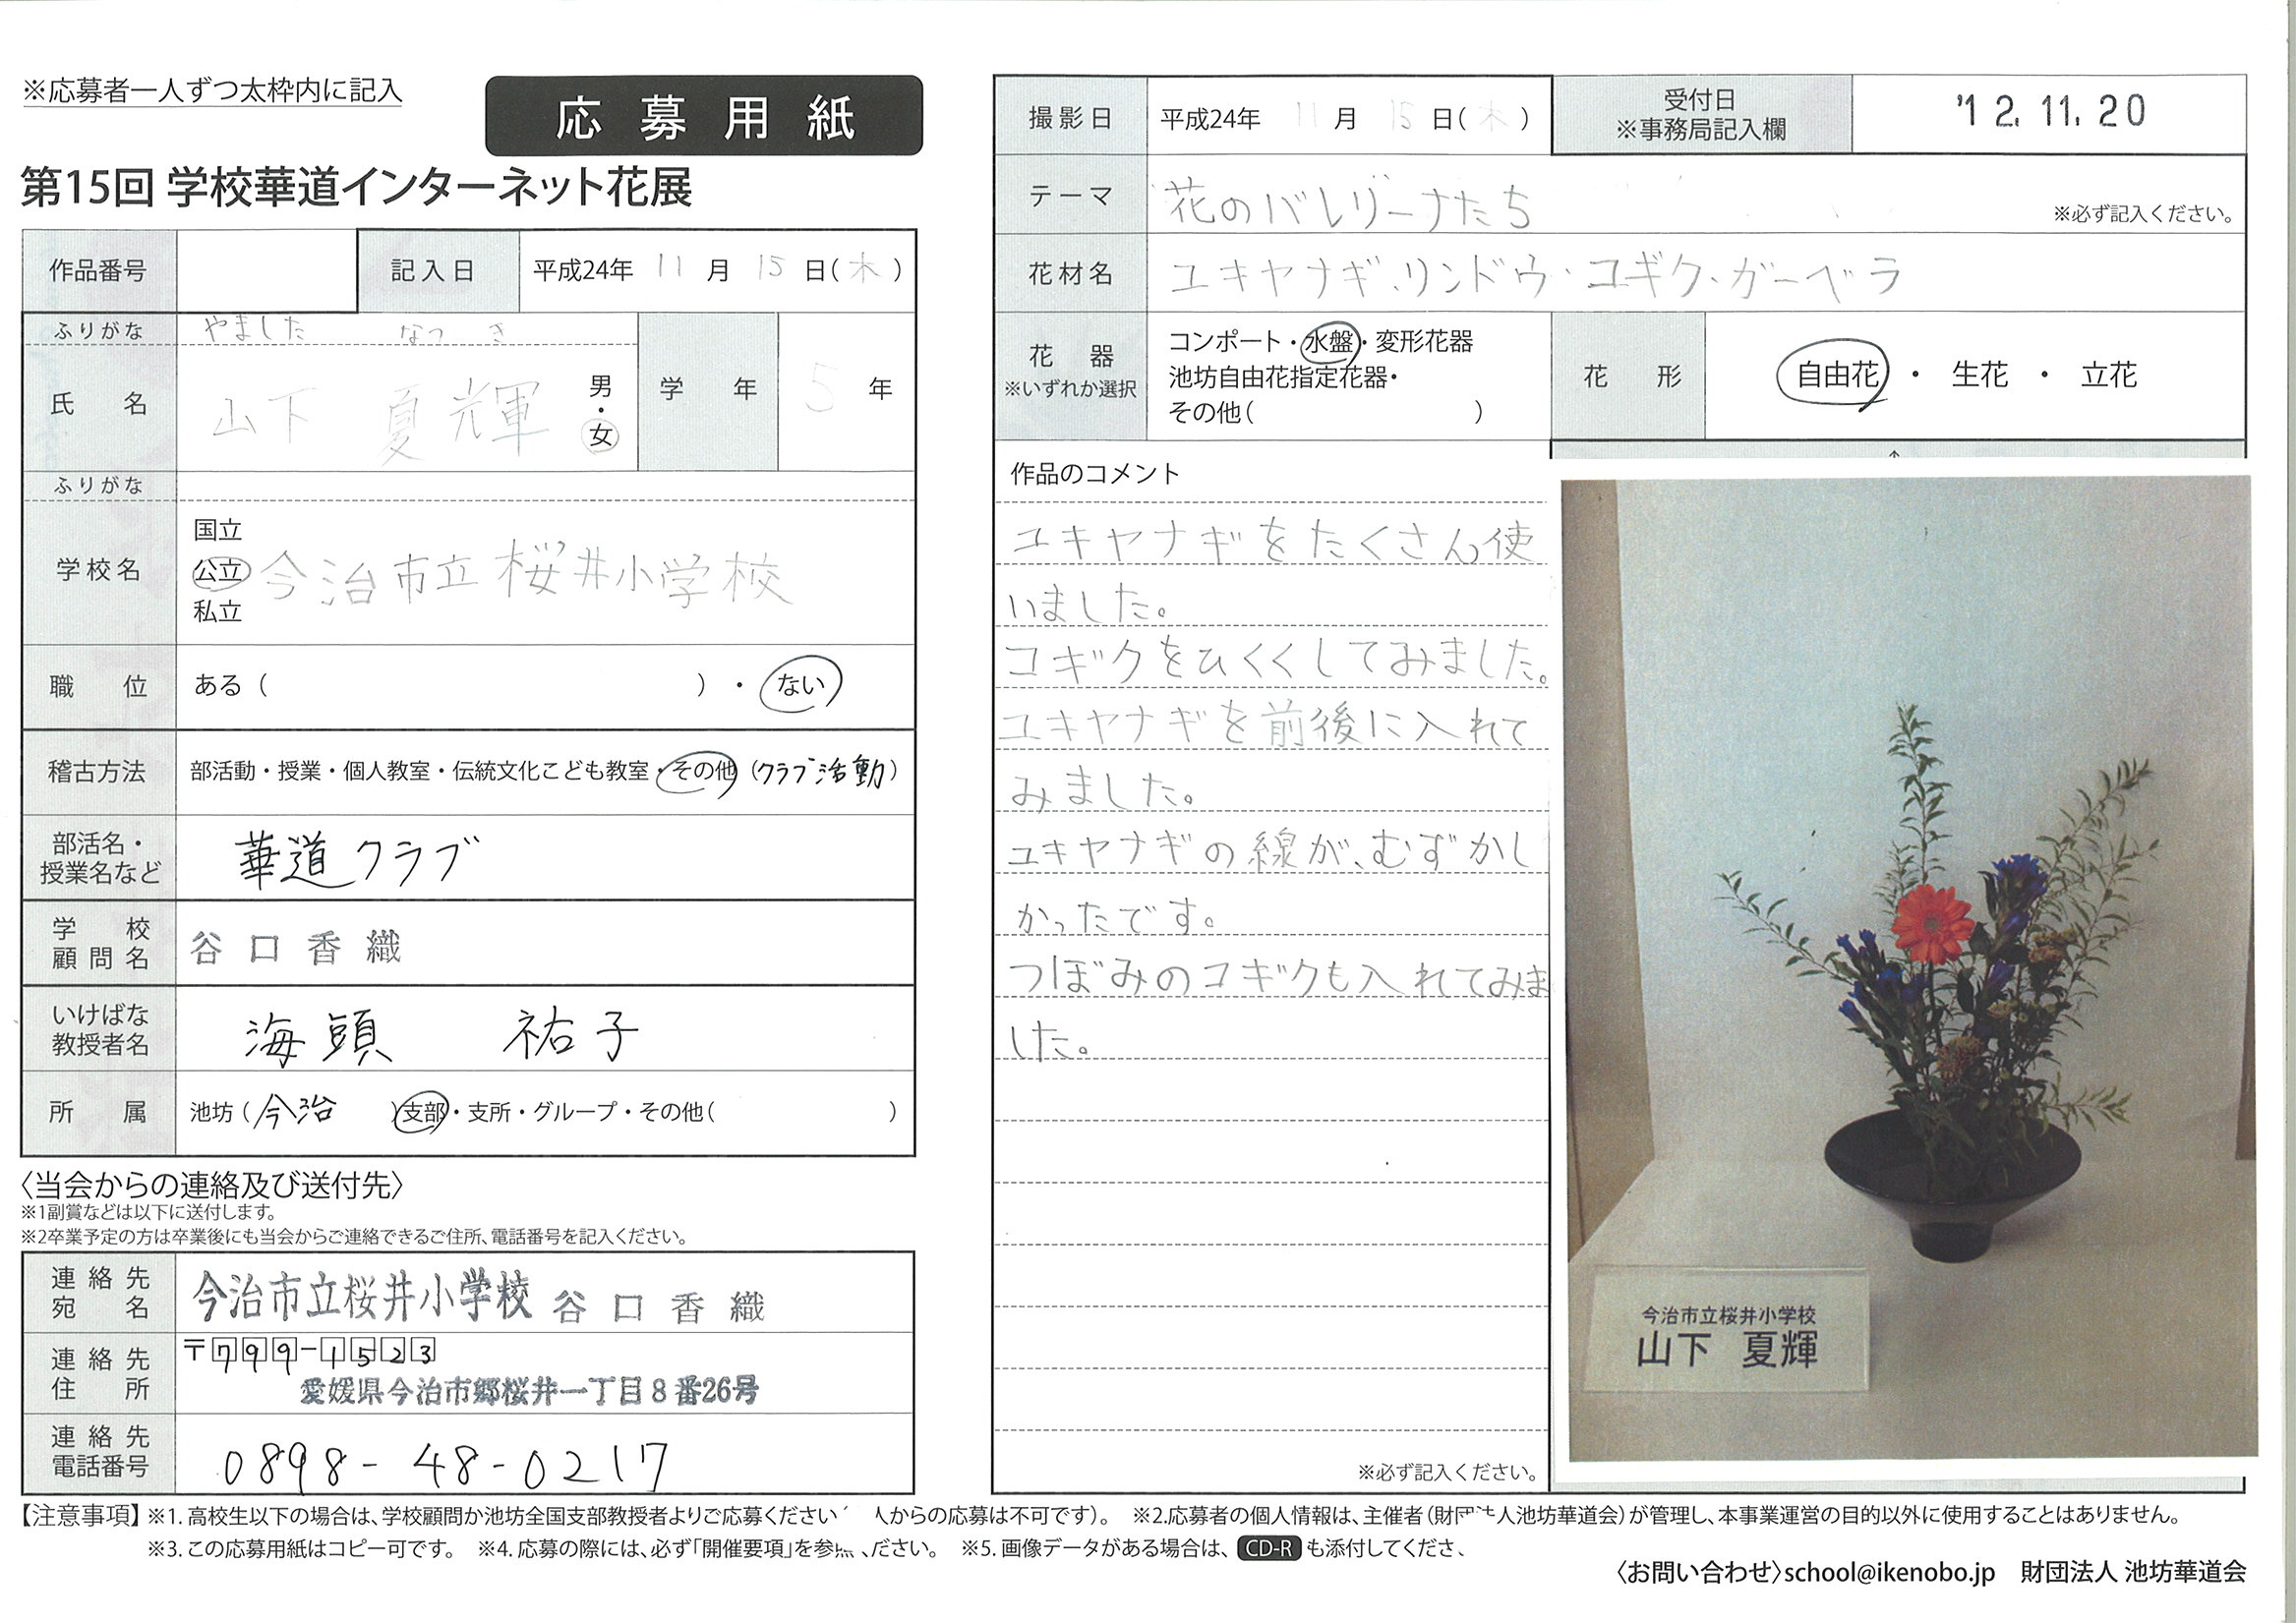 ※応募者一人ずつ太枠内に記入
応募用紙
第15回 学校華道インターネット花展
作品番号
記入日 平成24年 11月 15日(木)
ふりがな やました なつき
氏名 山下 夏輝 男・女 学年 5年
ふりがな
学校名 国立
公立 今治市立桜井小学校
私立
職位 ある( )・ない
稽古方法 部活動・授業・個人教室・伝統文化こども教室・その他(クラブ活動)
部活名・
授業名など 華道クラブ
学校
顧問名 谷口香織
いけばな
教授者名 海頭 祐子
所属 池坊(今治 )支部・支所・グループ・その他( )
〈当会からの連絡及び送付先〉
※1副賞などは以下に送付します。
※2卒業予定の方は卒業後にも当会からご連絡できるご住所、電話番号を記入ください。
連絡先
宛名 今治市立桜井小学校 谷口香織
連絡先
住所 〒799-1523
愛媛県今治市郷桜井一丁目8番26号
連絡先
電話番号 0898-48-0217
撮影日 平成24年 11月 15日(木)
受付日
※事務局記入欄 '12.11.20
テーマ 花のバレリーナたち ※必ず記入ください。
花材名 ユキヤナギ・リンドウ・コギク・ガーベラ
花器
※いずれか選択
コンポート・水盤・変形花器
池坊自由花指定花器・
その他( )
花形 自由花・生花・立花
作品のコメント
ユキヤナギをたくさん使
いました。
コギクをひくくしてみました。
ユキヤナギを前後に入れて
みました。
ユキヤナギの線が、むずかし
かったです。
つぼみのコギクも入れてみま
した。
※必ず記入ください。
今治市立桜井小学校
山下 夏輝
【注意事項】※1.高校生以下の場合は、学校顧問か池坊全国支部教授者よりご応募ください 人からの応募は不可です)。 ※2.応募者の個人情報は、主催者(財団法人池坊華道会)が管理し、本事業運営の目的以外に使用することはありません。
※3.この応募用紙はコピー可です。 ※4.応募の際には、必ず「開催要項」を参 ください。 ※5.画像データがある場合は、CD-Rも添付してくださ
〈お問い合わせ〉school@ikenobo.jp 財団法人 池坊華道会